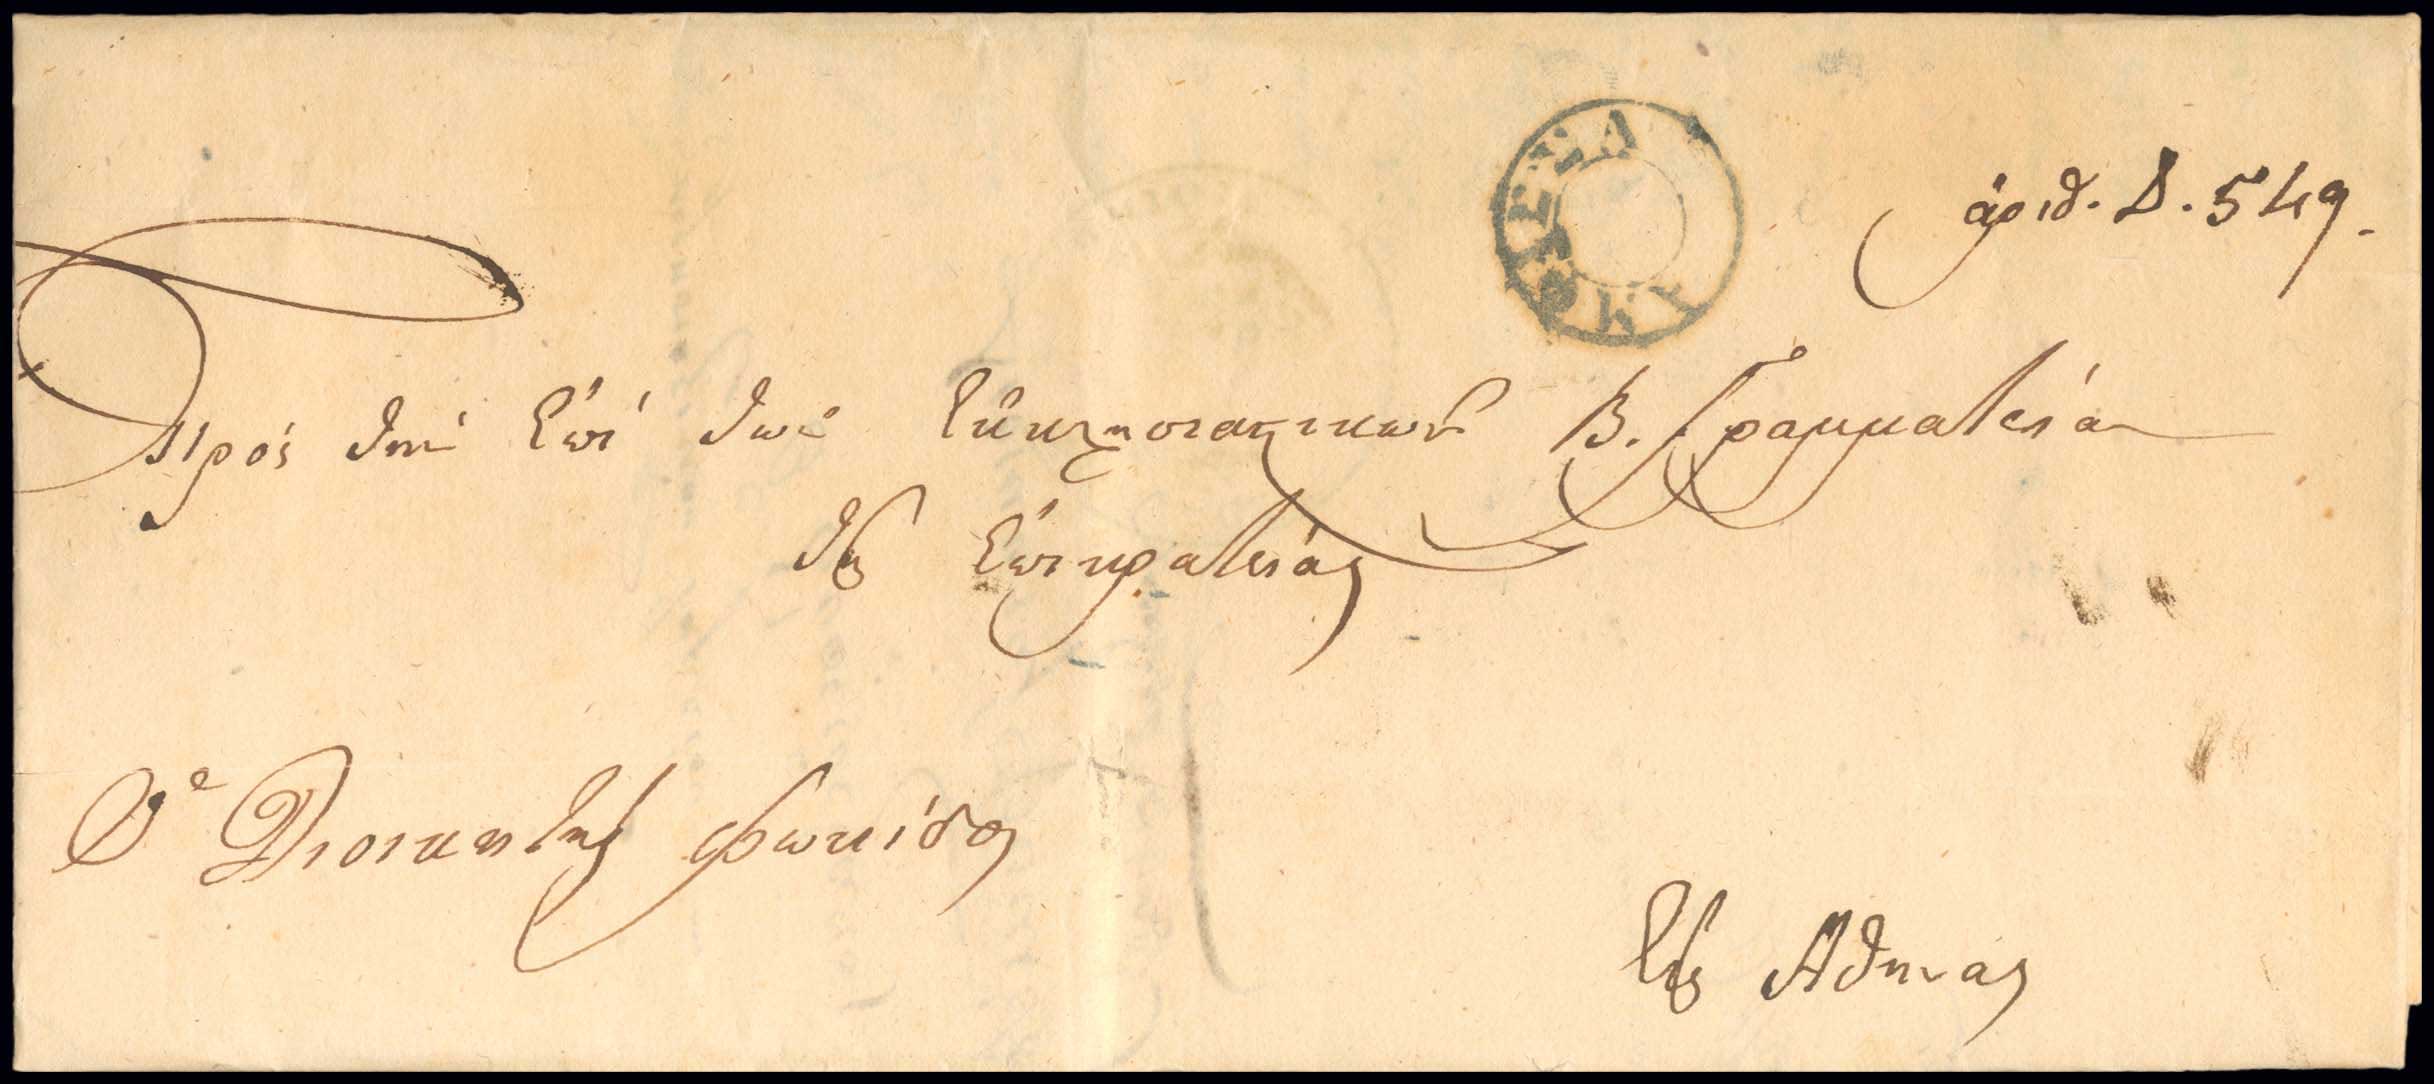 ἀριθ. Δ. 549.
Πρὸς τὴν Ἐπὶ τῶν Ἐκκλησιαστικῶν Β. Γραμματείαν
τῆς Ἐπικρατείας
Ὁ Διοικητὴς Φωκίδος
Εἰς Ἀθήνας